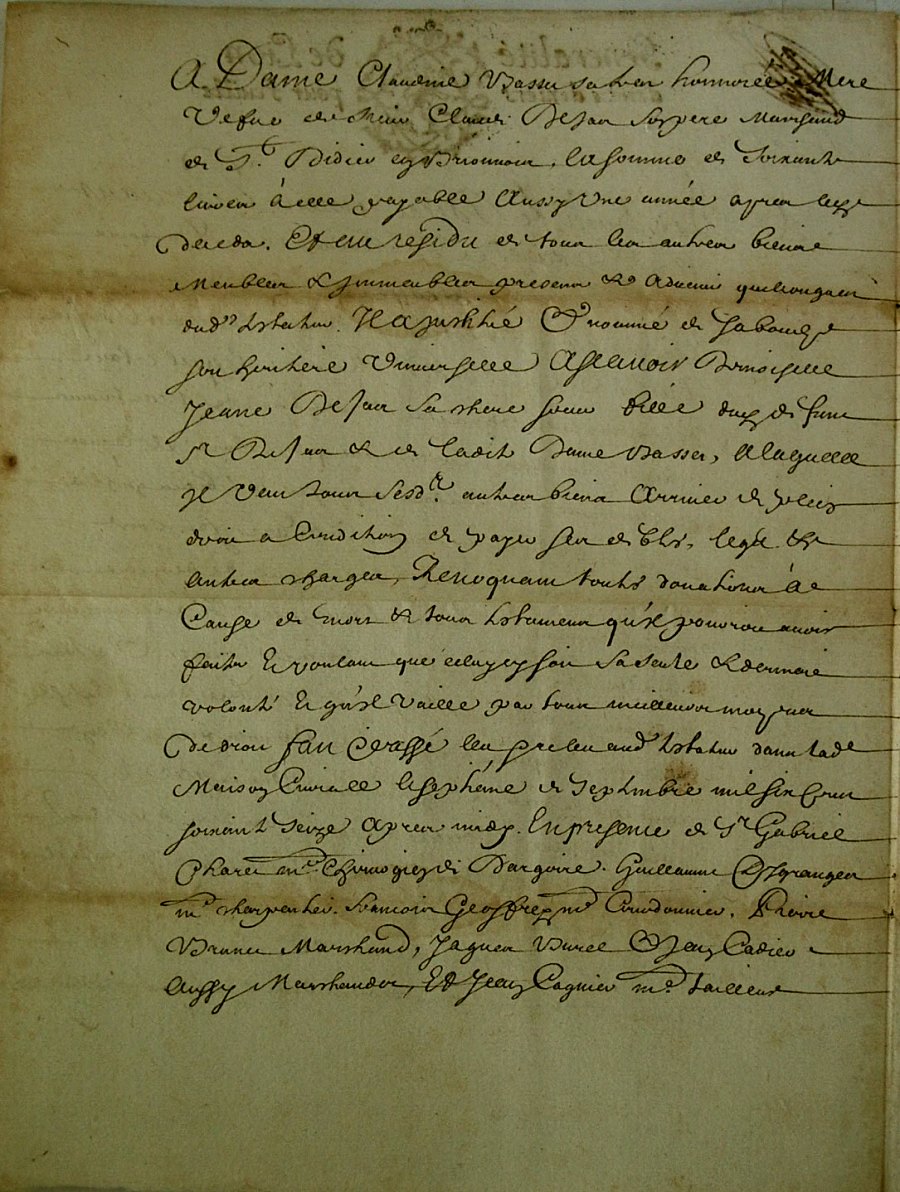 A Dame Claudine Vasser sa tres honnorée Mere
Vefue de Claude DeJan son pere Marchand
de St. Didier en Brionnois, la somme de Soixante
liures à elle payable Aussy Une année apres led
deceds. Et au residu de tous les autres biens
Meubles & Jmmeubles presens & Aduenir quelconques
dud. testateur. Il a jnstitué & nommé de sa bouche
son heritiere Vniuerselle Asçauoir Damoiselle
Jeane DeJan sa chere soeur fille dud feu
Sr DeJan & de ladit Dame Vasser, A laquelle
Il Veut tous sesd. autres biens Arriuer de plein
droit a Condition de payer ses debts, legats &
autres charges, Reuoquant touts donations à
Cause de mort & tous testamens qu'il pourroit auoir
faits Et voulant que celuy cy soit sa seule & derniere
volonté Et qu'il Vaille par tous meilleurs moyens
De droit fait et passé leu et releu aud. testateur dans lade
Maison Curialle le septiéme de Septembre mil six Cens
soixante Seize Apres midy. En presence de Sr Gabriel
Charet me. Chirurgien de Dargoire. Guillaume Desgranges
me. charpentier. francois Geoffrey me Cordonnier. Pierre
Brunet Marchand, Jaques Buree & Jean Cadier
Aussy Marchands, Et Jean Cagnier me. tailleur